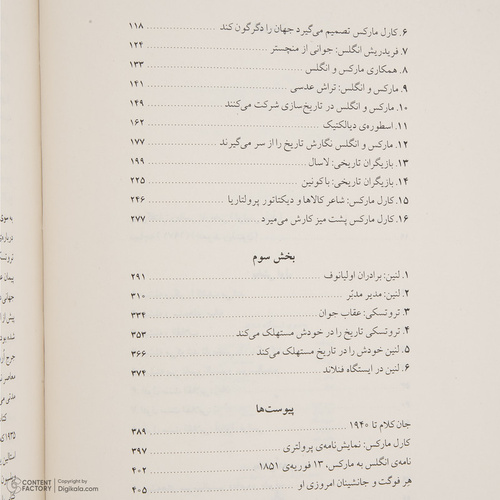 ۶. کارل مارکس تصمیم می‌گیرد جهان را دگرگون کند ۱۱۸
۷. فریدریش انگلس: جوانی از منچستر ۱۲۴
۸. همکاری مارکس و انگلس ۱۳۳
۹. مارکس و انگلس: تراش عدسی ۱۴۱
۱۰. مارکس و انگلس در تاریخ‌سازی شرکت می‌کنند ۱۴۹
۱۱. اسطوره‌ی دیالکتیک ۱۶۲
۱۲. مارکس و انگلس نگارش تاریخ را از سر می‌گیرند ۱۷۷
۱۳. بازیگران تاریخی: لاسال ۱۹۹
۱۴. بازیگران تاریخی: باکونین ۲۲۵
۱۵. کارل مارکس: شاعر کالاها و دیکتاتور پرولتاریا ۲۴۶
۱۶. کارل مارکس پشت میز کارش می‌میرد ۲۷۷
بخش سوم
۱. لنین: برادران اولیانوف ۲۹۱
۲. لنین: مدیر مدبّر ۳۱۰
۳. تروتسکی: عقاب جوان ۳۳۴
۴. تروتسکی تاریخ را در خودش مستهلک می‌کند ۳۵۳
۵. لنین خودش را در تاریخ مستهلک می‌کند ۳۶۶
۶. لنین در ایستگاه فنلاند ۳۷۴
پیوست‌ها
جان کلام تا ۱۹۴۰ ۳۸۹
کارل مارکس: نمایش‌نامه‌ی پرولتری ۳۹۷
نامه‌ی انگلس به مارکس، ۱۳ فوریه‌ی ۱۸۵۱ ۴۰۲
هِر فوگت و جانشینان امروزی او ۴۰۵
به سوی
جهانی
پیش از
شده بود
معاصر
مدتی می
کتاب
۱۹۳۵
CONTENT FACTORY
Copyright by Digikala.com